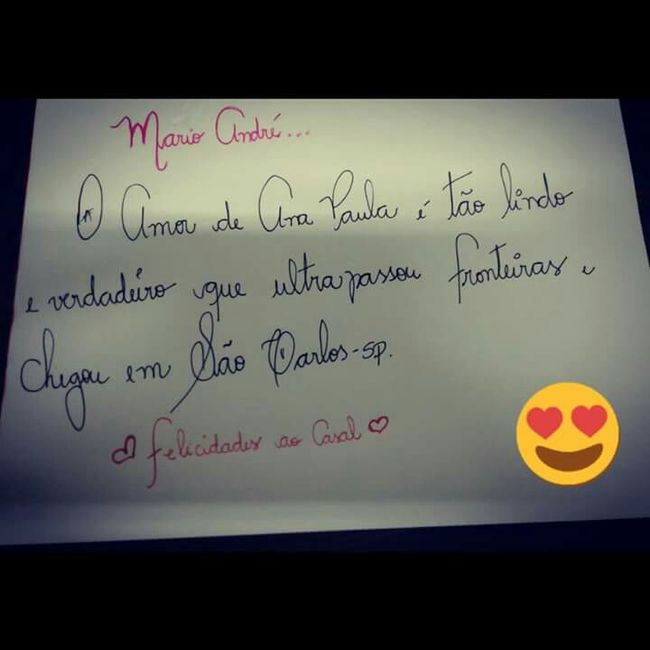 Mario André...
O Amor de Ana Paula é tão lindo
e verdadeiro que ultrapassou fronteiras e
chegou em São Carlos-SP.
Felicidades ao Casal